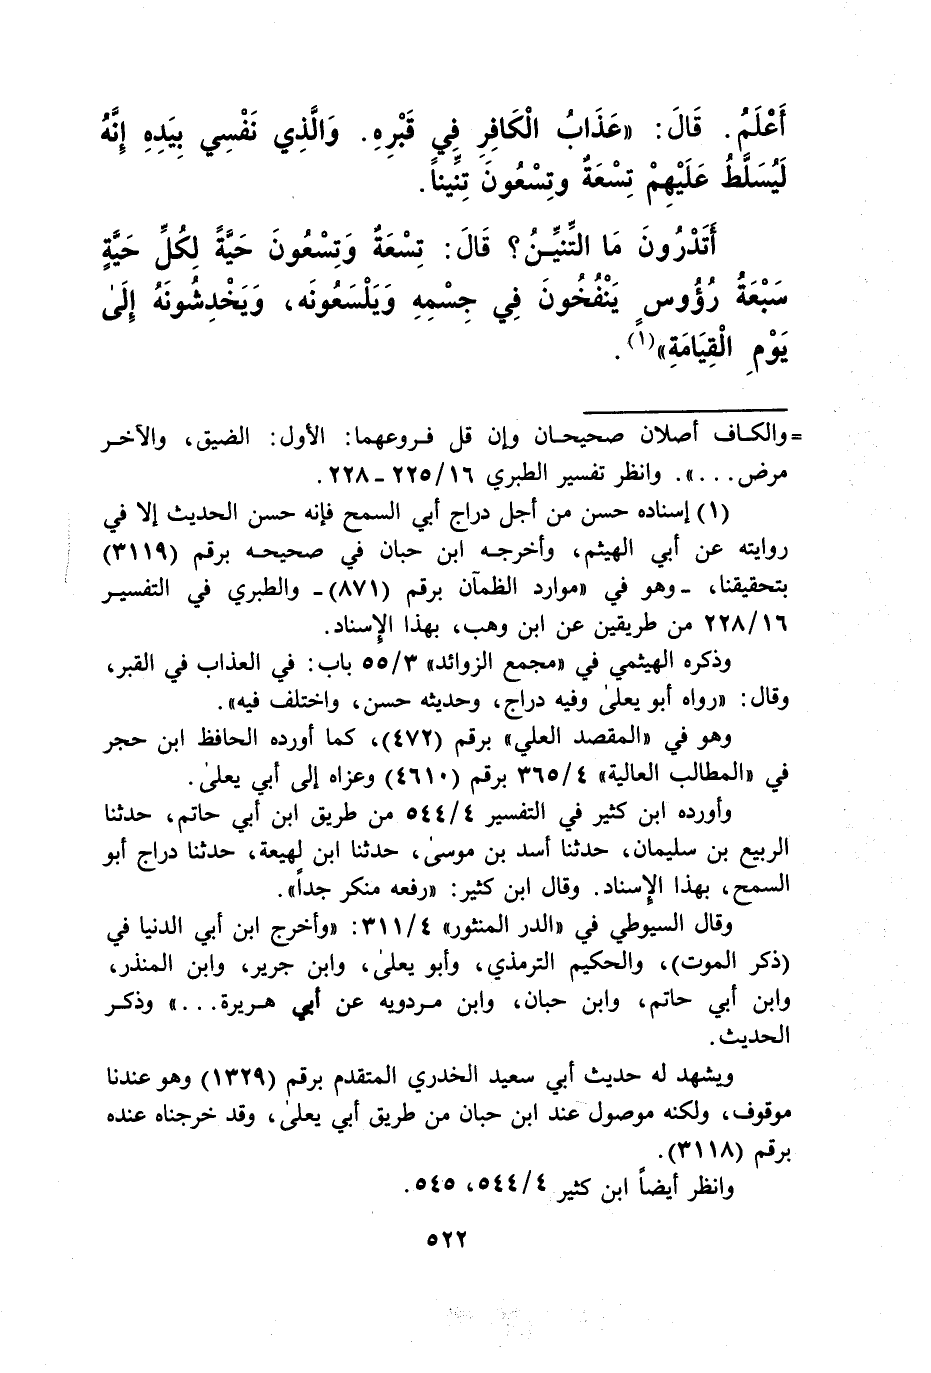 أَعْلَمُ. قَالَ: «عَذَابُ الْكَافِرِ فِي قَبْرِهِ. وَالَّذِي نَفْسِي بِيَدِهِ إِنَّهُ
لَيُسَلَّطُ عَلَيْهِمْ تِسْعَةٌ وتِسْعُونَ تِنِّيناً.
أَتَدْرُونَ مَا التِّنيِّنُ؟ قَالَ: تِسْعَةٌ وَتِسْعُونَ حَيَّةً لِكُلِّ حَيَّةٍ
سَبْعَةُ رُؤُوسٍ يَنْفُخُونَ فِي جِسْمِهِ وَيَلْسَعُونَه، وَيَخْدِشُونَهُ إِلَىٰ
يَوْمِ الْقِيَامَةِ»(١).
=والكاف أصلان صحيحان وإن قل فروعهما: الأول: الضيق، والآخر
مرض...». وانظر تفسير الطبري ٢٢٥/١٦ - ٢٢٨.
(١) إسناده حسن من أجل دراج أبي السمح فإنه حسن الحديث إلا في
روايته عن أبي الهيثم، وأخرجه ابن حبان في صحيحه برقم (٣١١٩)
بتحقيقنا، - وهو في «موارد الظمآن برقم (٨٧١) - والطبري في التفسير
٢٢٨/١٦ من طريقين عن ابن وهب، بهذا الإسناد.
وذكره الهيثمي في «مجمع الزوائد» ٥٥/٣ باب: في العذاب في القبر،
وقال: «رواه أبو يعلىٰ وفيه دراج، وحديثه حسن، واختلف فيه».
وهو في «المقصد العلي» برقم (٤٧٢)، كما أورده الحافظ ابن حجر
في «المطالب العالية» ٣٦٥/٤ برقم (٤٦١٠) وعزاه إلى أبي يعلىٰ.
وأورده ابن كثير في التفسير ٥٤٤/٤ من طريق ابن أبي حاتم، حدثنا
الربيع بن سليمان، حدثنا أسد بن موسىٰ، حدثنا ابن لهيعة، حدثنا دراج أبو
السمح، بهذا الإسناد. وقال ابن كثير: «رفعه منكر جداً».
وقال السيوطي في «الدر المنثور» ٣١١/٤: «وأخرج ابن أبي الدنيا في
(ذكر الموت)، والحكيم الترمذي، وأبو يعلىٰ، وابن جرير، وابن المنذر،
وابن أبي حاتم، وابن حبان، وابن مردويه عن أبي هريرة...» وذكر
الحديث.
ويشهد له حديث أبي سعيد الخدري المتقدم برقم (١٣٢٩) وهو عندنا
موقوف، ولكنه موصول عند ابن حبان من طريق أبي يعلىٰ، وقد خرجناه عنده
برقم (٣١١٨).
وانظر أيضاً ابن كثير ٥٤٤/٤، ٥٤٥.
٥٢٢